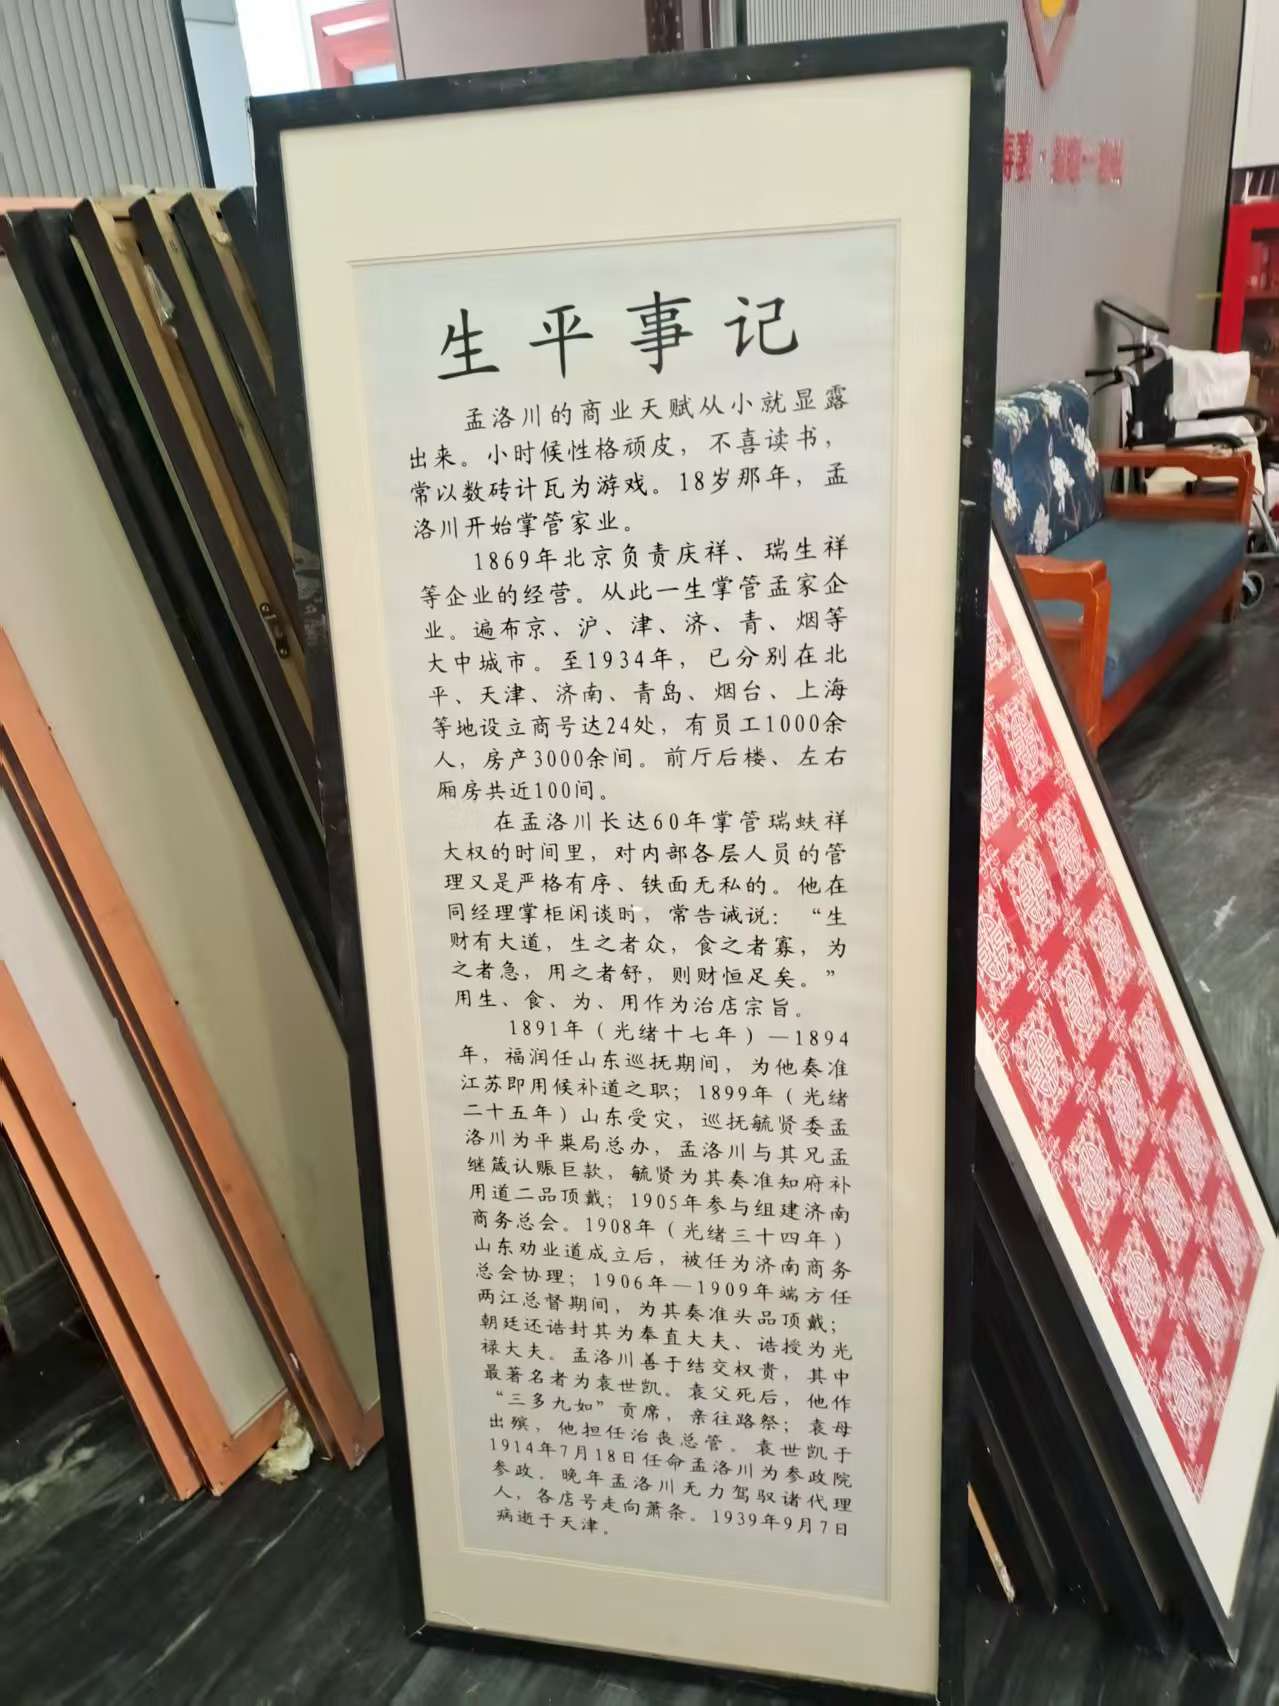 生平事记
孟洛川的商业天赋从小就显露
出来。小时候性格顽皮，不喜读书，
常以数砖计瓦为游戏。18岁那年，孟
洛川开始掌管家业。
1869年北京负责庆祥、瑞生祥
等企业的经营。从此一生掌管孟家企
业。遍布京、沪、津、济、青、烟等
大中城市。至1934年，已分别在北
平、天津、济南、青岛、烟台、上海
等地设立商号达24处，有员工1000余
人，房产3000余间。前厅后楼、左右
厢房共近100间。
在孟洛川长达60年掌管瑞蚨祥
大权的时间里，对内部各层人员的管
理又是严格有序、铁面无私的。他在
同经理掌柜闲谈时，常告诫说：“生
财有大道，生之者众，食之者寡，为
之者急，用之者舒，则财恒足矣。”
用生、食、为、用作为治店宗旨。
1891年（光绪十七年）—1894
年，福润任山东巡抚期间，为他奏准
江苏即用候补道之职；1899年（光绪
二十五年）山东受灾，巡抚毓贤委孟
洛川为平粜局总办，孟洛川与其兄孟
继箴认赈巨款，毓贤为其奏准知府补
用道二品顶戴；1905年参与组建济南
商务总会。1908年（光绪三十四年）
山东劝业道成立后，被任为济南商务
总会协理；1906年—1909年端方任
两江总督期间，为其奏准头品顶戴；
朝廷还诰封其为奉直大夫、诰授为光
禄大夫。孟洛川善于结交权贵，其中
最著名者为袁世凯。袁父死后，他作
“三多九如”贡席，亲往路祭；袁母
出殡，他担任治丧总管。袁世凯于
1914年7月18日任命孟洛川为参政院
参政。晚年孟洛川无力驾驭诸代理
人，各店号走向萧条。1939年9月7日
病逝于天津。